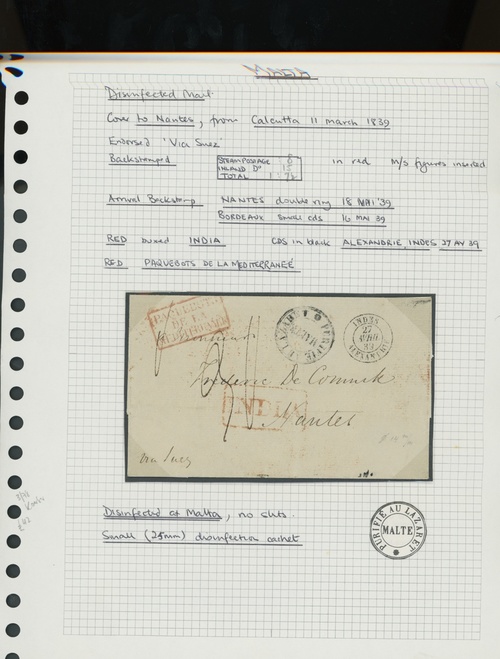 MALTA
Disinfected Mail.
Cover to Nantes, from Calcutta 11 march 1839
Endorsed 'Via Suez'
Backstamped STEAM POSTAGE 8 in red M/s figures inserted
INLAND Do 15
TOTAL
Arrival Backstamp NANTES double ring 18 MAI '39
BORDEAUX small cds 16 MAI 39
RED boxed INDIA CDS in black ALEXANDRIE, INDES 27 AV 39
RED PAQUEBOTS DE LA MEDITERRANÉE
PAQUEBOTS
DE LA
MEDITERRANEE
INDES
27
39
ALEXANDRIE
Monsieur
Frederic De Connink
INDIA
Nantes
via Suez
Disinfected at Malta, no slits.
Small (25mm) disinfection cachet
PURIFIÉ AU LAZARET
MALTE